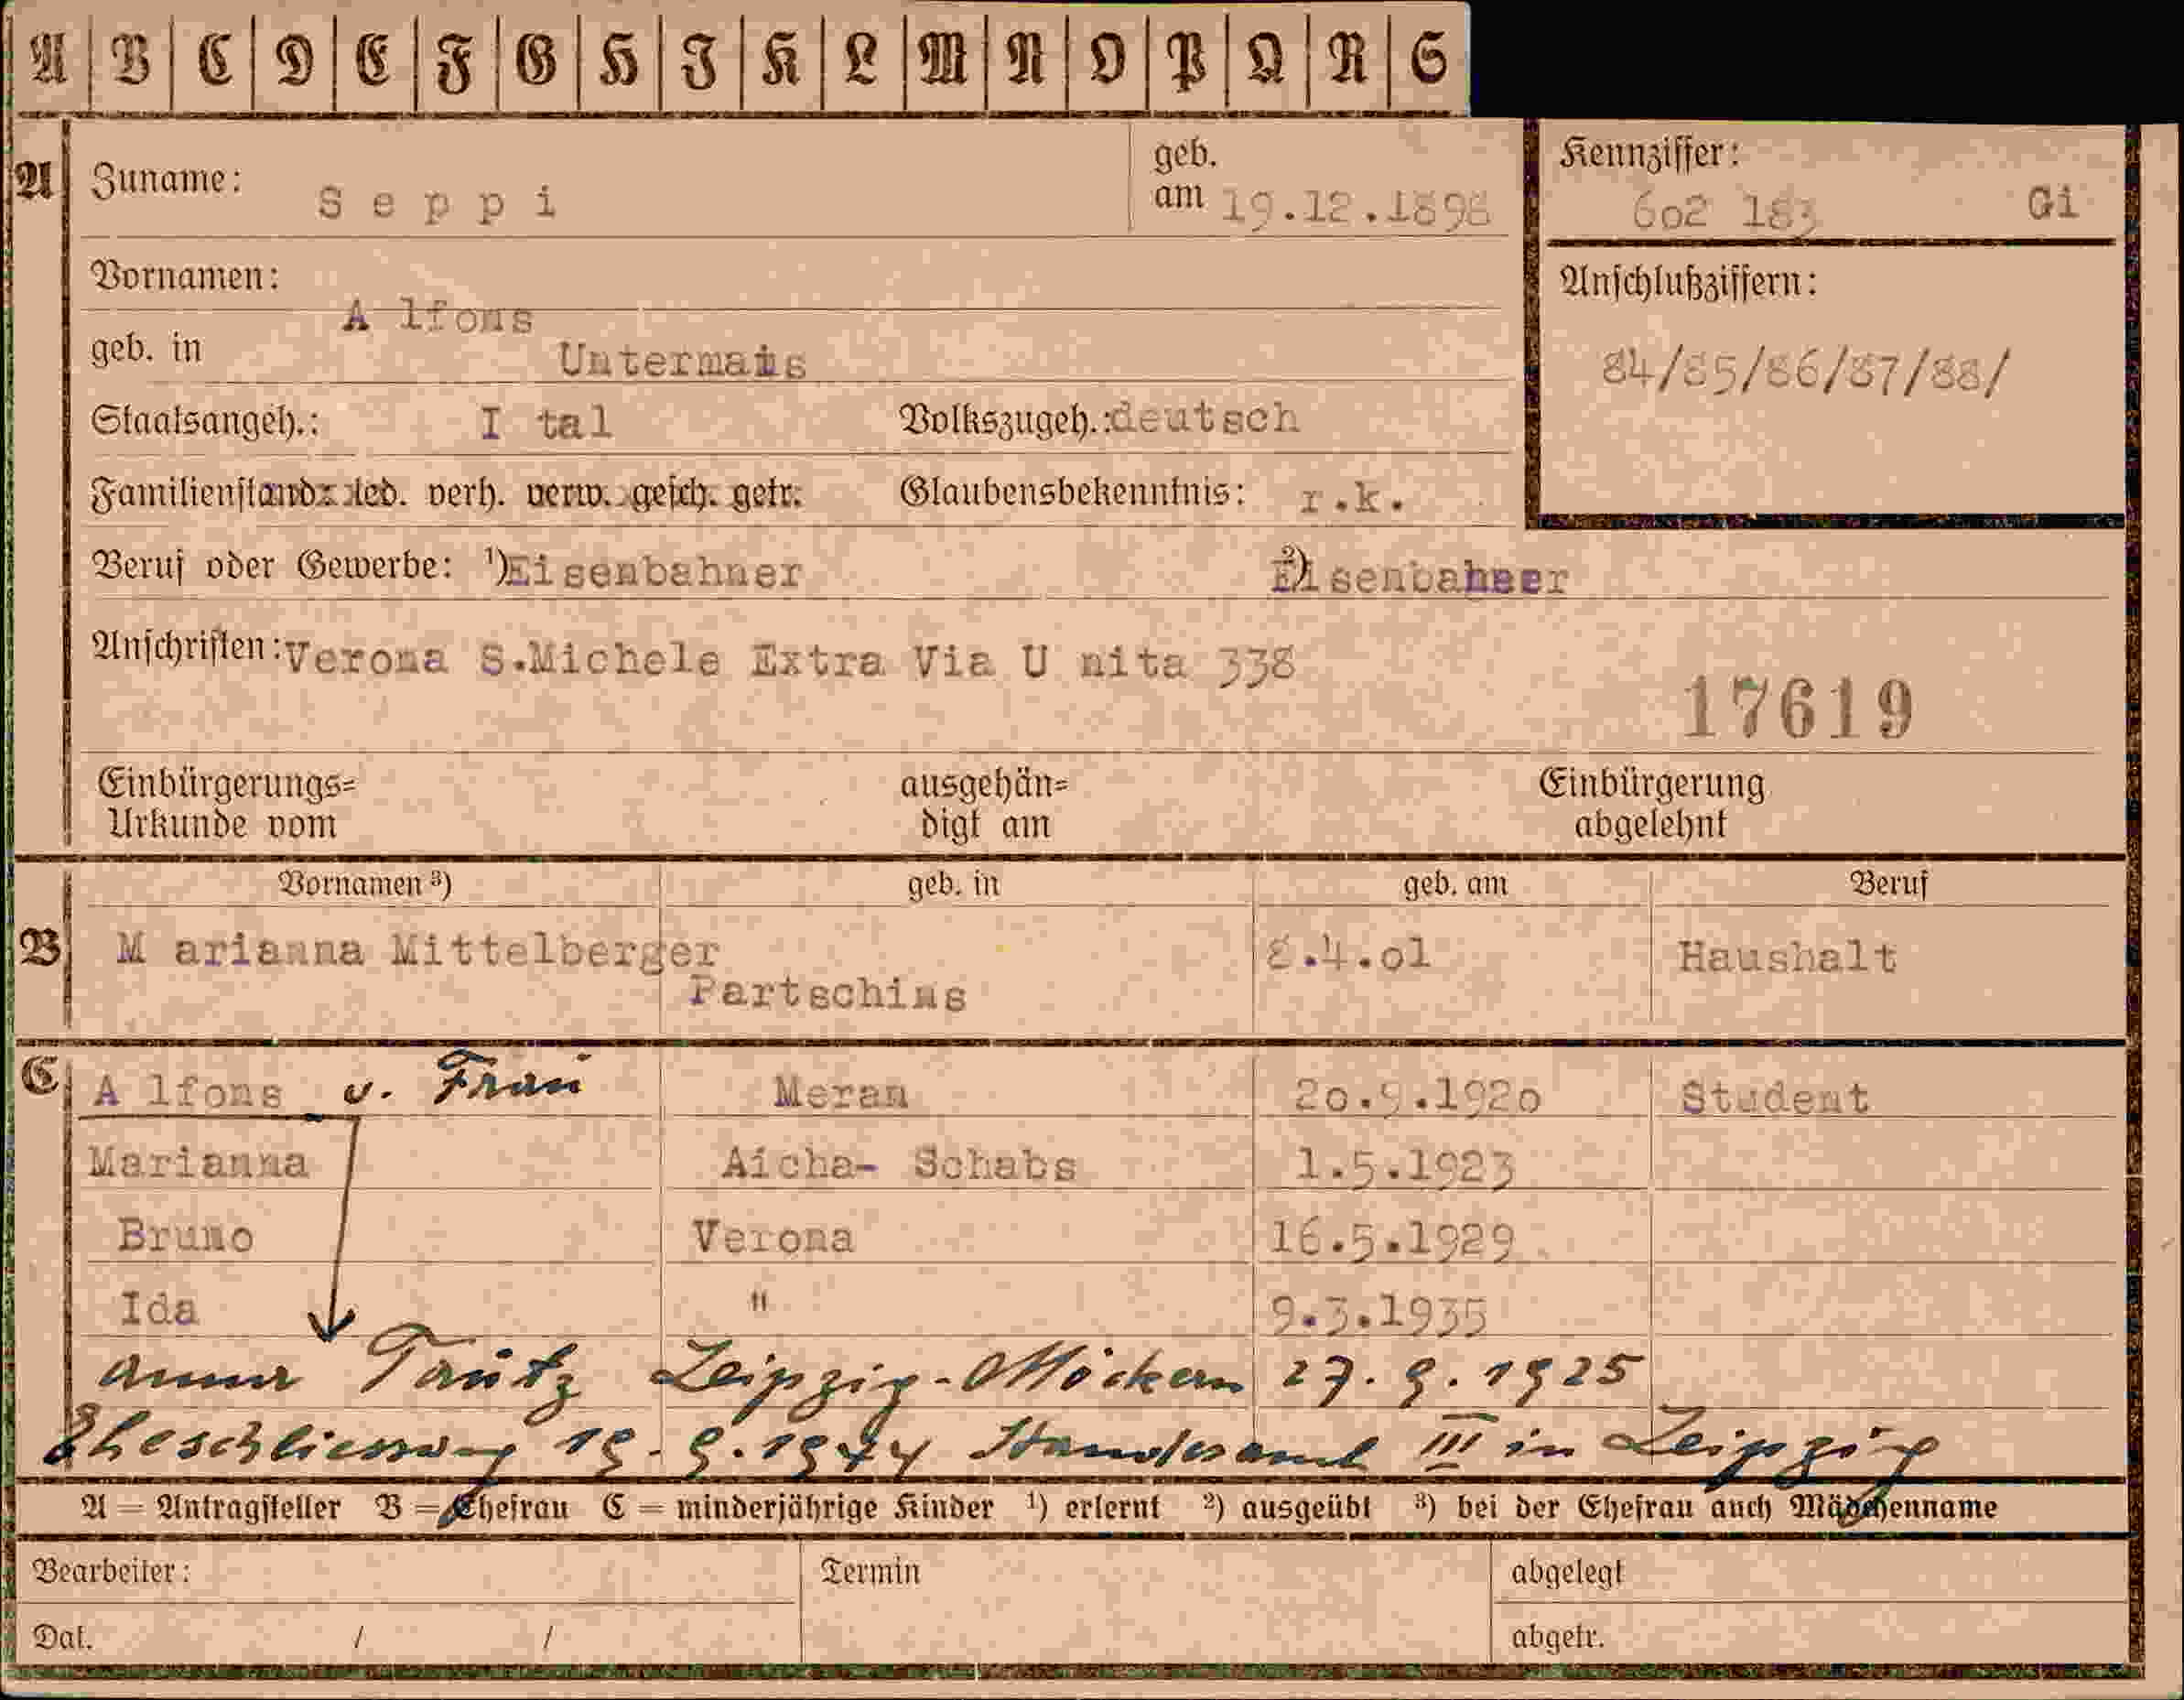 A B C D E F G H I K L M N O P Q R S
A Zuname: Seppi geb. am 19.12.1898 Kennziffer: 602 183 Gi
Vornamen: Alfons Anschlußziffern:
geb. in Untermais 84/85/86/87/88/
Staatsangeh.: Ital Volkszugeh.: deutsch
Familienstand: led. verh. verw. gesch. getr. Glaubensbekenntnis: r.k.
Beruf oder Gewerbe: 1) Eisenbahner 2) Eisenbahner
Anschriften: Verona S.Michele Extra Via Unita 338
17619
Einbürgerungs= ausgehän= Einbürgerung
Urkunde vom digt am abgelehnt
Vornamen 3) geb. in geb. am Beruf
B Marianna Mittelberger Partschins 8.4.01 Haushalt
C Alfons u. Frau Meran 20.9.1920 Student
Marianna Aicha- Schabs 1.5.1923
Bruno Verona 16.5.1929
Ida " 9.3.1935
Anna Tautz Leipzig-Möckern 27.9.1925
Eheschliessung 19.9.1944 Standesamt III in Leipzig
A = Antragsteller B = Ehefrau C = minderjährige Kinder 1) erlernt 2) ausgeübt 3) bei der Ehefrau auch Mädchenname
Bearbeiter: Termin abgelegt
Dat. / / abgetr.